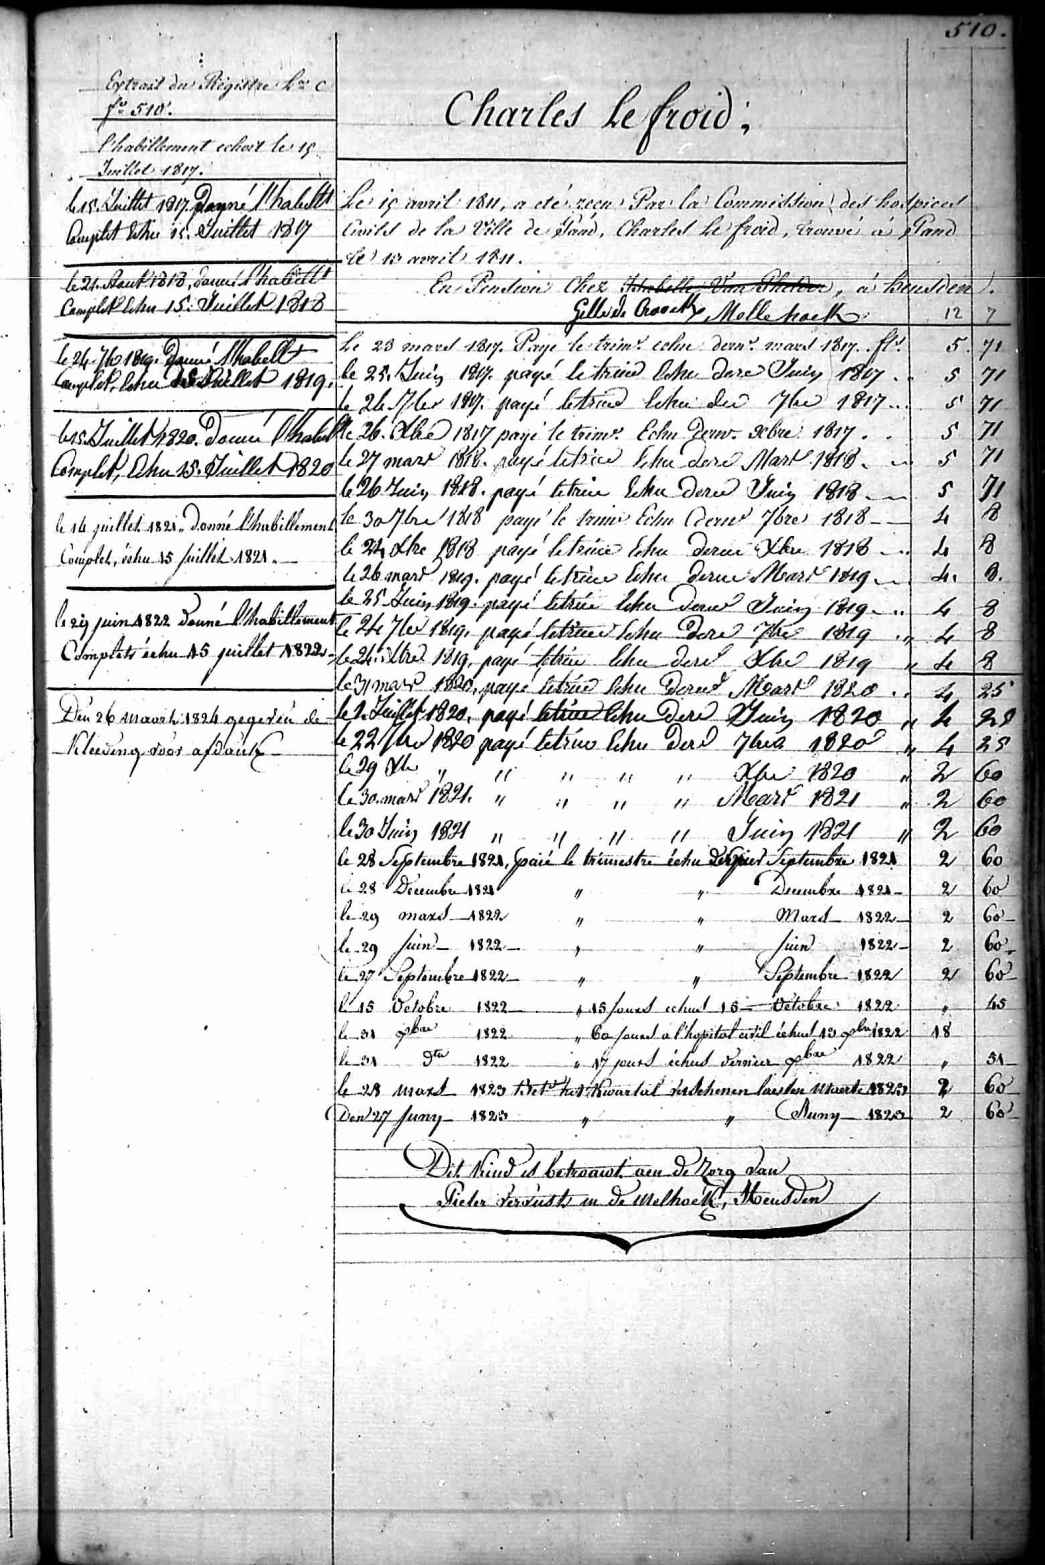 510.
Extrait du Régistre Lra C
fo 510.
l'habillement echoit le 15
Juillet 1817.
le 15 Juillet 1817 Donné l'habillt
Complet Echu 15 Juillet 1817
le 21 Aout 1818, donné l'habillt
Complet Echu 15 Juillet 1818
le 24 7bre 1819 Donné l'habillt
Complet, Echu 15 Juillet 1819.
le 15 Juillet 1820. Donné l'habillt
Complet, Echu 15 Juillet 1820
le 14 juillet 1821. Donné l'habillement
Complet, échu 15 juillet 1821.
le 29 juin 1822 donné l'habillement
Complets échu 15 juillet 1822
Den 26 Maart 1824 gegeven de
Kleeding voor afdank
Charles Le froid;
Le 15 avril 1811, a été recu Par la Commission des hospices
Civils de la Ville de Gand, Charles Le froid, trouvé à Gand
le 13 avril 1811.
En Pension Chez Isabelle Van , à heusden.
Gille de Mollehoek 12 7
Le 23 mars 1817. Payé le trimre echu dernr mars 1817. fls. 5. 71
le 25 Juin 1817. payé le trim Echu dere Juin 1817 .. 5 71
le 26 7ber 1817. payé le trim Echu der 7bre 1817 ... 5 71
le 26 Xbre 1817 payé le trimre Echu dernr. xbre 1817 . . 5 71
le 27 mars 1818. payé le trim Echu dere Mars 1818. .. 5 71
le 26 Juin 1818. payé le trim Echu dere Juin 1818 5 71
le 30 7bre 1818 payé le trim Echu dernr 7bre 1818 4 8
le 24 Xbre 1818 payé le trim Echu dernr Xbre 1818 .. 4 8
le 26 mars 1819. payé le trim Echu dernr Mars 1819 4. 8.
le 25 Juin 1819. payé le trim Echu dernr Juin 1819 .. 4 8
le 24 7bre 1819. payé le trim Echu dere 7bre 1819 " 4 8
le 24 Xbre 1819, payé le trim Echu dere Xbre 1819 " 4 8
le 31 mars 1820, payé le trim Echu dernr Mars 1820 .. 4 25
le 1 Juillet 1820, payé le trim Echu dere Juin 1820 " 4 25
le 22 7bre 1820 payé le trim Echu dere 7bre 1820 " 4 25
le 29 Xbre " " " " " Xbre 1820 " 2 60
le 30 mars 1821. " " " " Mars 1821 " 2 60
le 30 Juin 1821 " " " " Juin 1821 " 2 60
le 28 Septembre 1821, paié le trimestre échu dernier Septembre 1821 2 60
le 28 Décembre 1821 " " Decembre 1821 2 60
le 29 mars 1822 " " Mars 1822 2 60
le 29 Juin 1822 " " juin 1822 2 60
le 27 Septembre 1822 " " Septembre 1822 2 60
le 15 Octobre 1822 " 15 jours echus 15 Octobre 1822 " 45
le 31 Xbre 1822 " 60 jours a l'hopital civil échus 13 Xbre 1822 18
le 31 dto 1822 " 17 jours échus dernier Xbre 1822 " 51
le 28 mars 1823 het Kwartael verschenen laesten Maerte 1823 2 60
Den 27 Juny 1823 " " Juny 1823 2 60
Dit Kind is betrouwt aen de Zorg van
Pieter in de Melhoek, Heusden